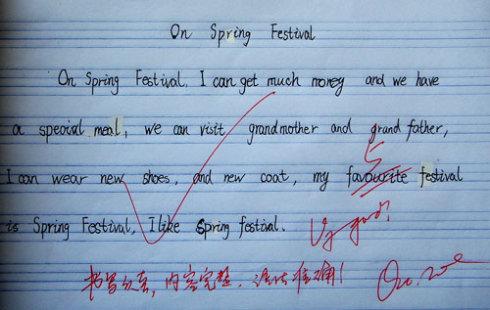 On Spring Festival
On Spring Festival, I can get much money and we have
a speceial meal, we can visit grandmother and grand father,
I can wear new shoes, and new coat, my favourite festival
is Spring Festival, I like Spring festival.
good!
书写认真，内容完整，语法准确！